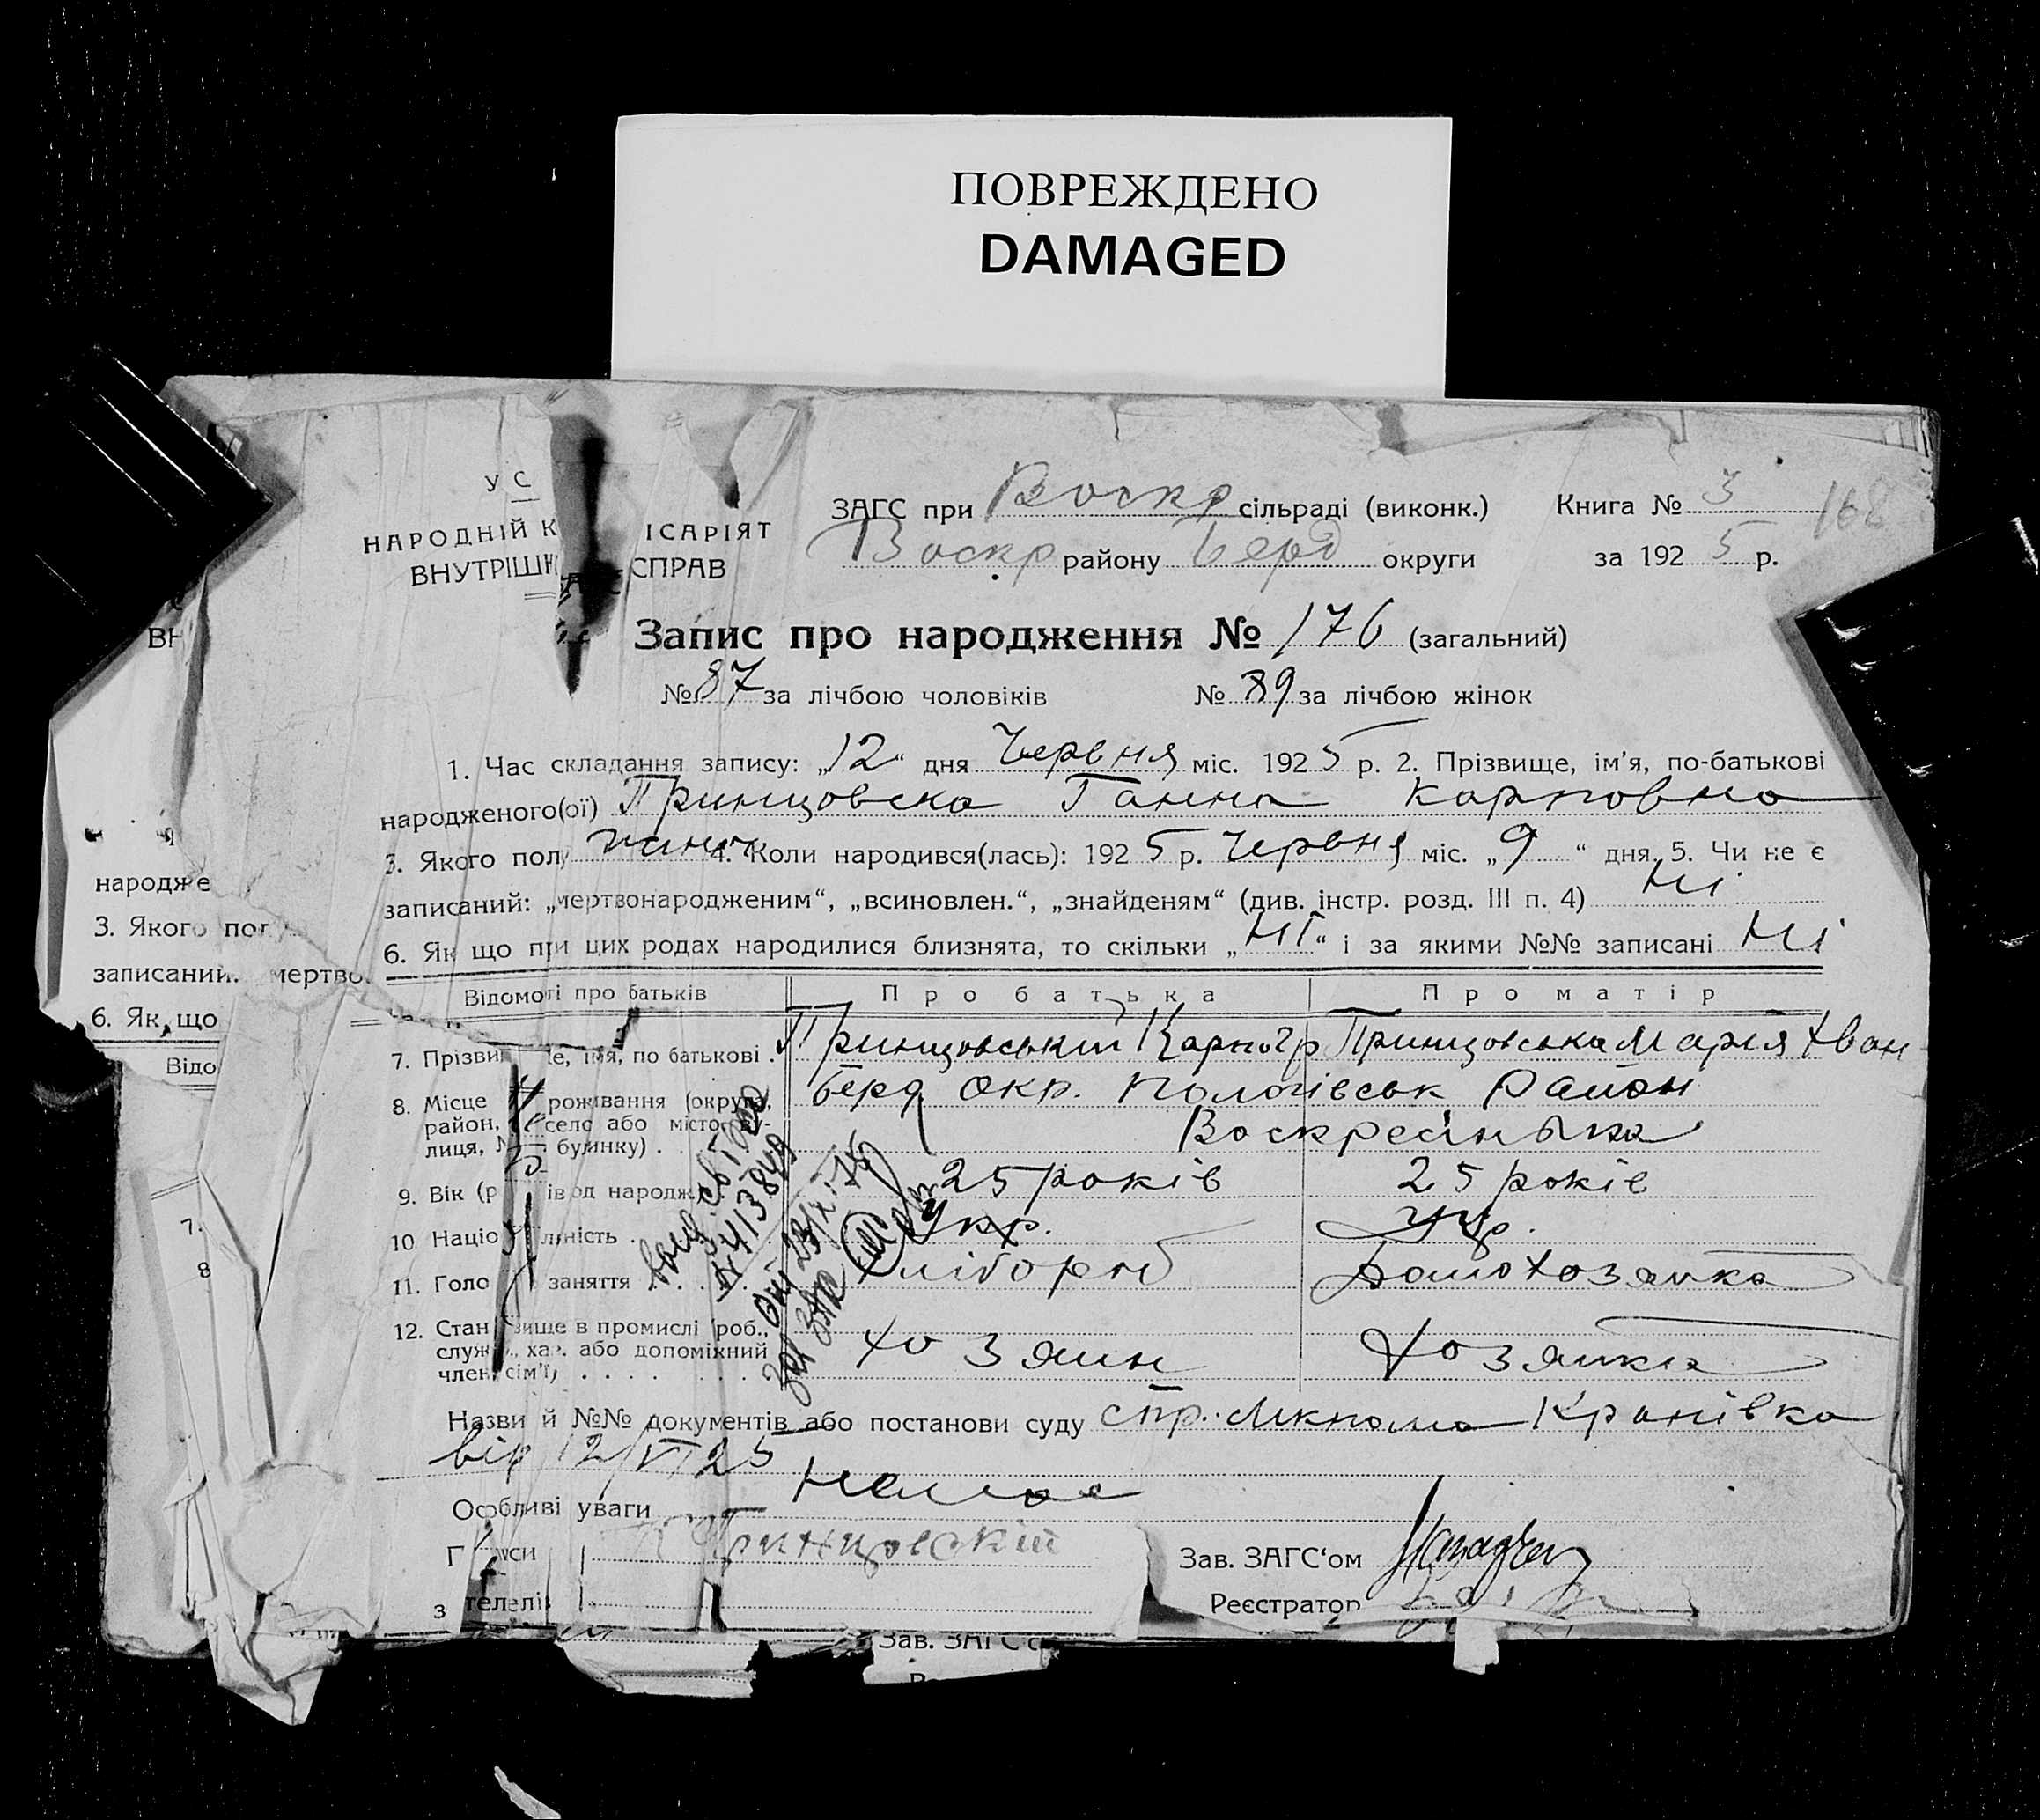 ПОВРЕЖДЕНО
DAMAGED
УС
НАРОДНІЙ К ІСАРІЯТ
ВНУТРІШН СПРАВ
ЗАГС при Воскр сільраді (виконк.) Книга № 3 168
Воскр району Берд округи за 1925 р.
Запис про народження № 176 (загальний)
№ 87 за лічбою чоловіків № 89 за лічбою жінок
1. Час складання запису: „12“ дня Червня міс. 1925 р. 2. Прізвище, ім'я, по-батькові
народженого(ої) Принцовска Ганна Карповна
3. Якого полу жіноч 4. Коли народився(лась): 1925 р. Червня міс. „9“ дня. 5. Чи не є
записаний: „мертвонародженим“, „всиновлен.“, „знайденям“ (див. інстр. розд. III п. 4) Ні
6. Як що при цих родах народилися близнята, то скільки „Ні“ і за якими №№ записані Ні
Відомоті про батьків Про батька Про матір
7. Прізви е, імя, по батькові Принцовський Карпо Гр Принцовська Марія Іван
8. Місце роживання (округа, Берд окр. Пологівськ Район
район, село або місто, ву-
лиця, № будинку) Воскресінька
9. Вік (р ів од народж.) 25 років 25 років
10. Націо льність Укр. Укр.
11. Голо заняття Хлібороб Домохозяйка
12. Стан вище в промислі (роб.,
служ., хаз. або допоміжний
член сім'ї) хозяин хозяйка
выд. св.
№ 413849
23/XI-75
Назви й №№ документів або постанови суду спр.
від 12/VI 25
Особливі уваги Немає
Г си Принцовский Зав. ЗАГС'ом
з телелі Реєстратор
ВН
народже
3. Якого пол
записаний. мертво
6. Як що
Відо
7.
8
Зав. ЗАГС'о